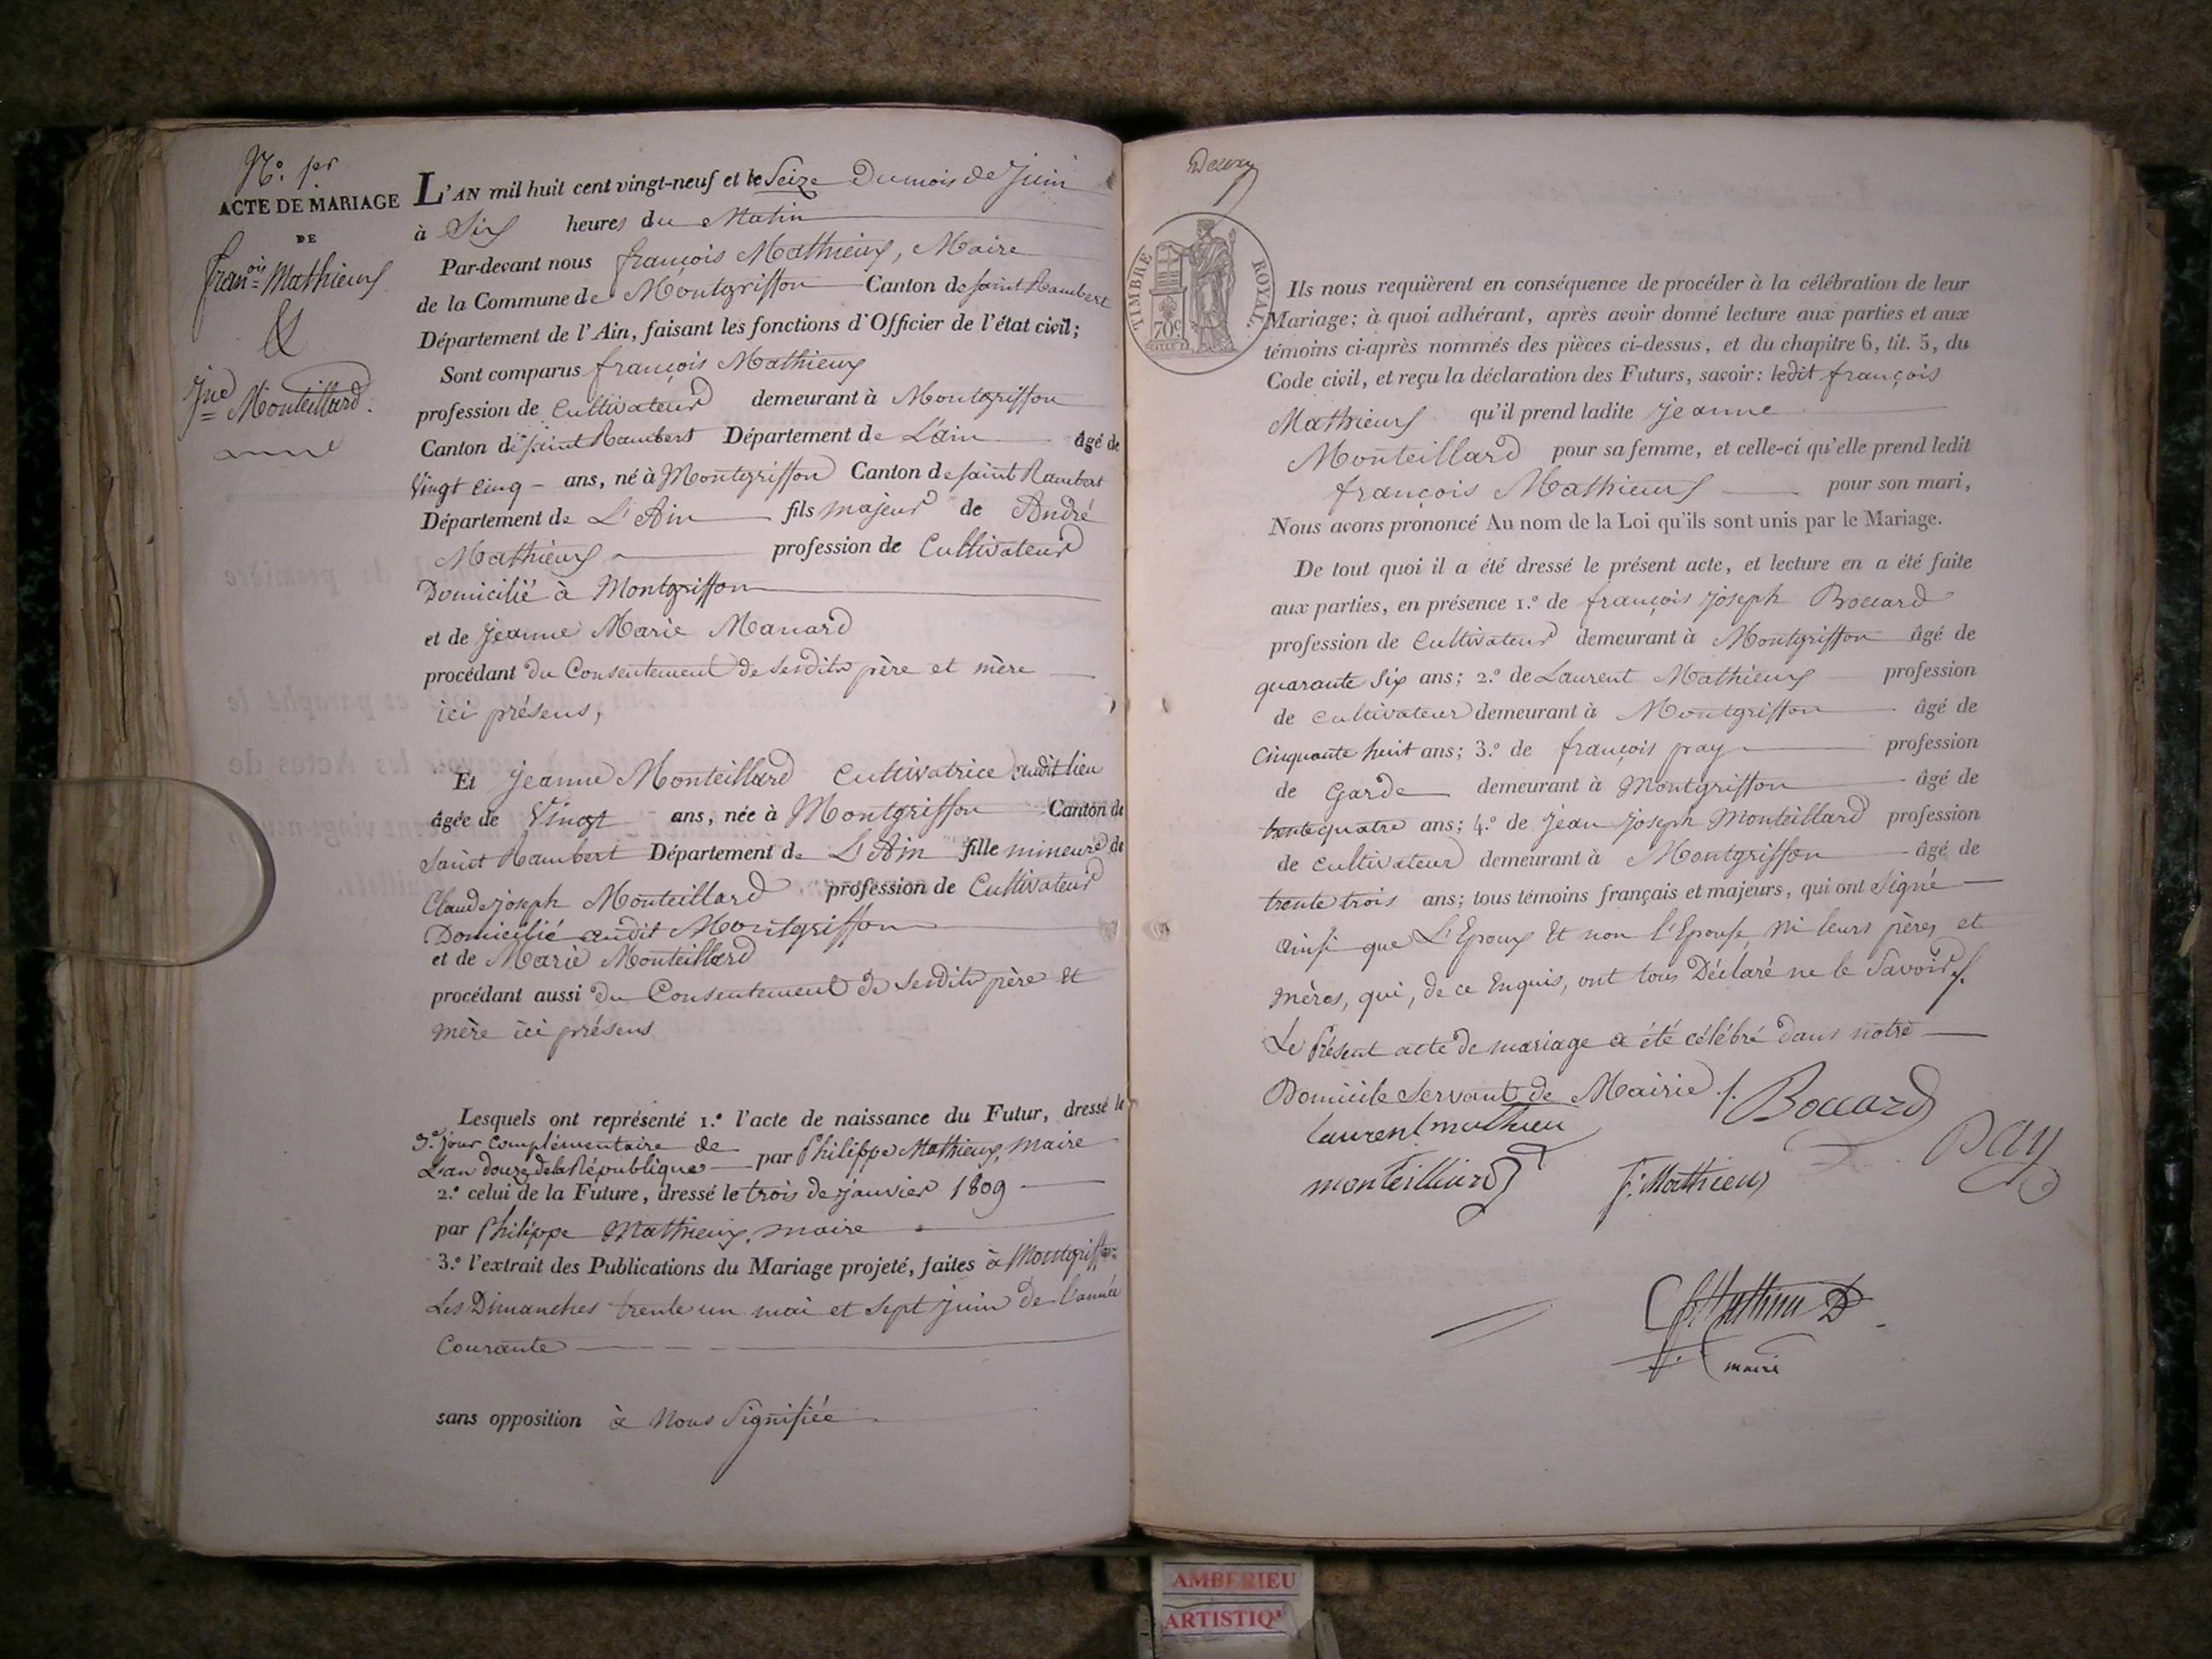 N.° 1er
ACTE DE MARIAGE
DE
franois Mathieux
&
Jne Monteillard.
L'AN mil huit cent vingt-neuf et le Seize Du mois de Juin
à Six heures du Matin
Par-devant nous françois Mathieux, Maire
de la Commune de Montgriffon Canton de saint Rambert
Département de l'Ain, faisant les fonctions d'Officier de l'état civil;
Sont comparus françois Mathieux
profession de Cultivateur demeurant à Montgriffon
Canton de saint Rambert Département de L'ain âgé de
Vingt Cinq ans, né à Montgriffon Canton de saint Rambert
Département de L'Ain fils majeur de André
Mathieux profession de Cultivateur
Domicilié à Montgriffon
et de Jeanne Marie Manard
procédant du Consentement de Sesdits père et mère
ici présens,
Et Jeanne Monteillard Cultivatrice audit lieu
âgée de Vingt ans, née à Montgriffon Canton de
Saint Rambert Département de L'Ain fille mineure de
Claude joseph Monteillard profession de Cultivateur
Domicilié audit Montgriffon
et de Marie Monteillard
procédant aussi du Consentement de Sesdits père Et
mère ici présens
Lesquels ont représenté 1.° l'acte de naissance du Futur, dressé le
3.e jour Complémentaire de
L'an douze de la République par Philippe Mathieux, maire
2.° celui de la Future, dressé le trois de janvier 1809
par Philippe Mathieux, maire
3.° l'extrait des Publications du Mariage projeté, faites à Montgriffon
Les Dimanches trente un mai et Sept juin de l'année
Courante
sans opposition à Nous Signifiée
TIMBRE ROYAL.
70c
Ils nous requièrent en conséquence de procéder à la célébration de leur
Mariage; à quoi adhérant, après avoir donné lecture aux parties et aux
témoins ci-après nommés des pièces ci-dessus, et du chapitre 6, tit. 5, du
Code civil, et reçu la déclaration des Futurs, savoir: ledit françois
Mathieux qu'il prend ladite Jeanne
Monteillard pour sa femme, et celle-ci qu'elle prend ledit
françois Mathieux pour son mari,
Nous avons prononcé Au nom de la Loi qu'ils sont unis par le Mariage.
De tout quoi il a été dressé le présent acte, et lecture en a été faite
aux parties, en présence 1.° de françois joseph Boccard
profession de Cultivateur demeurant à Montgriffon âgé de
quarante Six ans; 2.° de Laurent Mathieux profession
de Cultivateur demeurant à Montgriffon âgé de
Cinquante huit ans; 3.° de françois pray profession
de Garde demeurant à Montgriffon âgé de
trente quatre ans; 4.° de Jean joseph Monteillard profession
de Cultivateur demeurant à Montgriffon âgé de
trente trois ans; tous témoins français et majeurs, qui ont Signé
ainsi que L'Epoux Et non l'Epouse, Ni leurs pères et
mères, qui, de ce Enquis, ont tous Déclaré ne le Savoir.
Le Présent acte de mariage a été célébré dans notre
Domicile Servant de Mairie.
Boccard
Laurent mathieu
Monteilliard
F. Mathieux
maire
AMBERIEU
ARTISTIQ